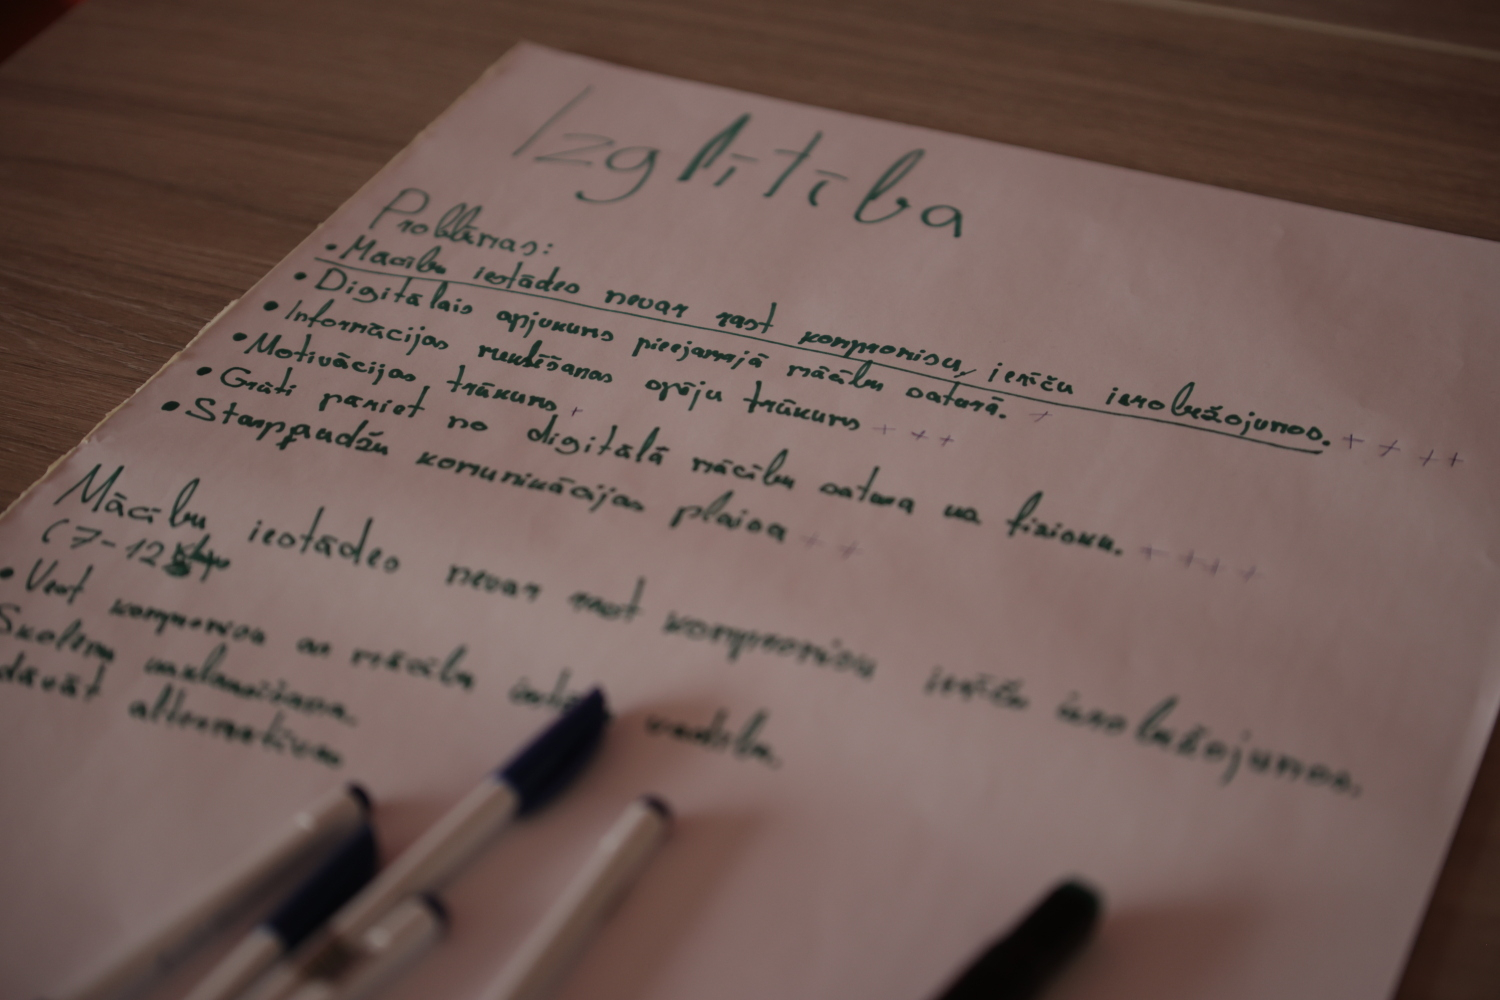 Izglītība
Problēmas:
• Mācību iestādes nevar rast kompromisu, ierīču ierobežojumos. + + ++
• Digitālais apjukums pieejamajā mācību saturā. +
• Informācijas meklēšanas spēju trūkums + + +
• Motivācijas trūkums +
• Grūti pāriet no digitālā mācību satura uz fizisku. + ++ +
• Starppaudžu komunikācijas plaisa + +
Mācību iestādes nevar rast kompromisu ierīču ierobežojumos.
(7-12
• Veet kompromisa ar mācību vadību.
Skolēnu
dāvāt alternatīvu